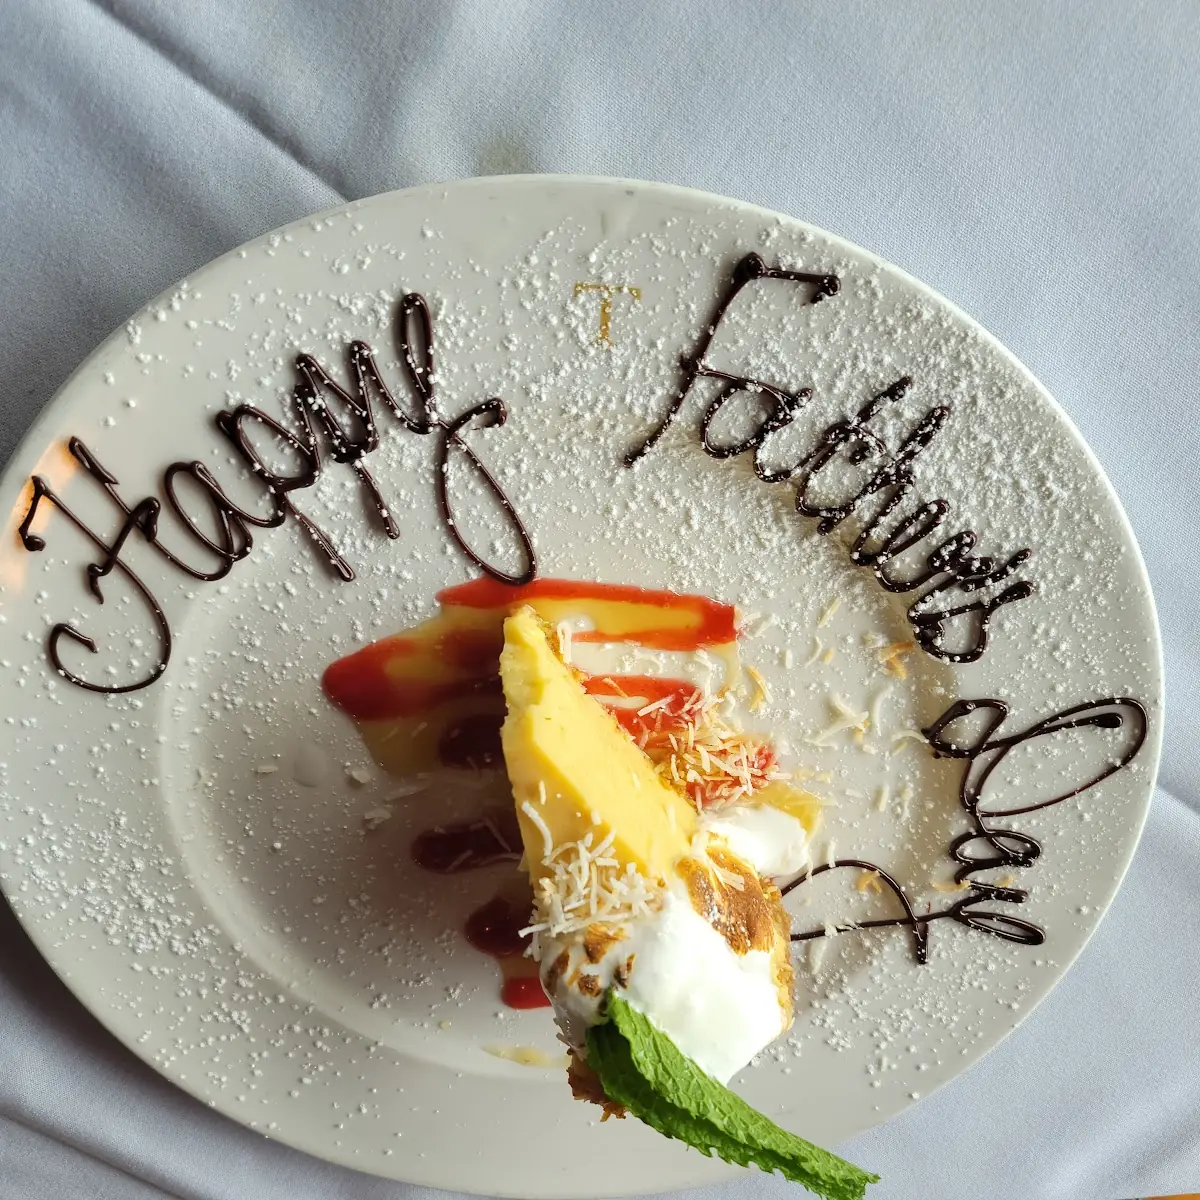 Happy Fathers Day
T